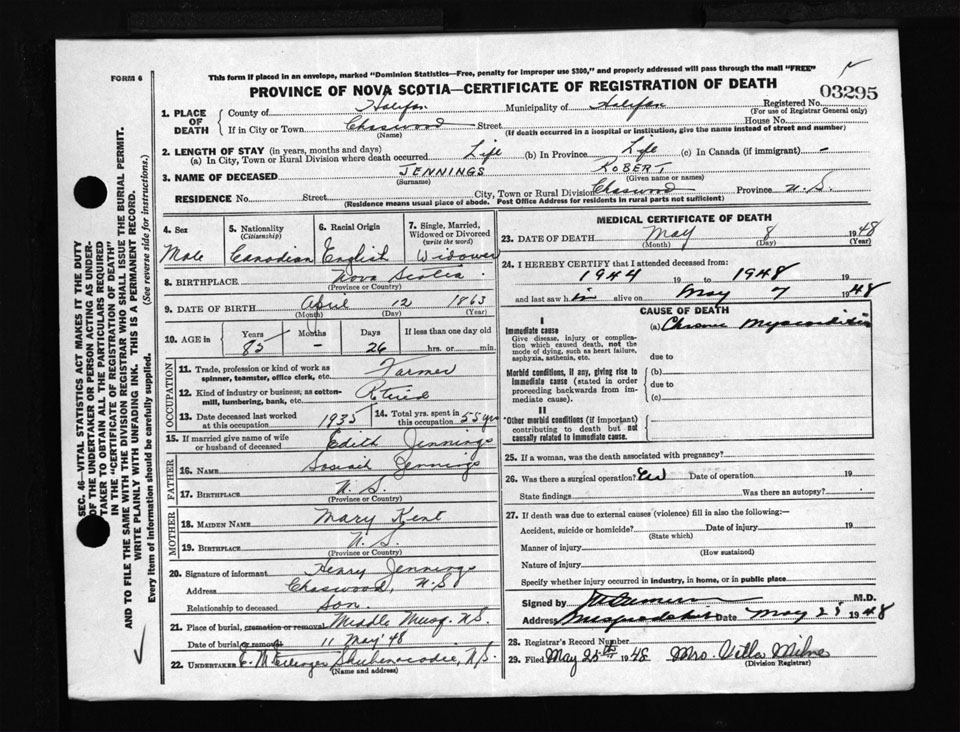 FORM 6
This form if placed in an envelope, marked "Dominion Statistics—Free, penalty for improper use $300," and properly addressed will pass through the mail "FREE"
PROVINCE OF NOVA SCOTIA—CERTIFICATE OF REGISTRATION OF DEATH
03295
1. PLACE OF DEATH County of Halifax Municipality of Halifax Registered No. (For use of Registrar General only)
If in City or Town Chaswood Street House No.
(Name) (If death occurred in a hospital or institution, give the name instead of street and number)
2. LENGTH OF STAY (in years, months and days)
(a) In City, Town or Rural Division where death occurred Life (b) In Province Life (c) In Canada (if immigrant) -
3. NAME OF DECEASED JENNINGS ROBERT
(Surname) (Given name or names)
RESIDENCE No. Street City, Town or Rural Division Chaswood Province N.S.
(Residence means usual place of abode. Post Office Address for residents in rural parts not sufficient)
4. Sex 5. Nationality (Citizenship) 6. Racial Origin 7. Single, Married, Widowed or Divorced (write the word)
Male Canadian English Widower
8. BIRTHPLACE Nova Scotia
(Province or Country)
9. DATE OF BIRTH April 12 1863
(Month) (Day) (Year)
10. AGE in Years Months Days If less than one day old
85 – 26 hrs. or min.
OCCUPATION
11. Trade, profession or kind of work as spinner, teamster, office clerk, etc. Farmer
12. Kind of industry or business, as cotton-mill, lumbering, bank, etc. Retired
13. Date deceased last worked at this occupation 1935 14. Total yrs. spent in this occupation 55 yrs
15. If married give name of wife or husband of deceased Edith Jennings
FATHER
16. NAME Jennings
17. BIRTHPLACE N.S.
(Province or Country)
MOTHER
18. MAIDEN NAME Mary Kent
19. BIRTHPLACE N.S.
(Province or Country)
20. Signature of informant Henry Jennings
Address Chaswood, N.S
Relationship to deceased son.
21. Place of burial, cremation or removal Middle Musq. N.S.
Date of burial or removal 11 May '48
22. UNDERTAKER Shubenacadie, N.S.
(Name and address)
MEDICAL CERTIFICATE OF DEATH
23. DATE OF DEATH May 8 1948
(Month) (Day) (Year)
24. I HEREBY CERTIFY that I attended deceased from:
1944 19 to 1948 19
and last saw him alive on May 7 1948
CAUSE OF DEATH
I
Immediate cause (a) Chronic Myocarditis
Give disease, injury or complication which caused death, not the mode of dying, such as heart failure, asphyxia, asthenia, etc. due to
Morbid conditions, if any, giving rise to immediate cause (stated in order proceeding backwards from immediate cause). (b) due to (c)
II
Other morbid conditions (if important) contributing to death but not causally related to immediate cause.
25. If a woman, was the death associated with pregnancy?
26. Was there a surgical operation? Date of operation 19
State findings Was there an autopsy?
27. If death was due to external causes (violence) fill in also the following:—
Accident, suicide or homicide? Date of injury 19
(State which)
Manner of injury
(How sustained)
Nature of injury
Specify whether injury occurred in industry, in home, or in public place
Signed by M.D.
Address Musquodoboit Date May 25 1948
28. Registrar's Record Number
29. Filed May 25th 1948 Mrs. Milner
(Division Registrar)
SEC. 46—VITAL STATISTICS ACT MAKES IT THE DUTY
OF THE UNDERTAKER OR PERSON ACTING AS UNDER-
TAKER TO OBTAIN ALL THE PARTICULARS REQUIRED
IN THE "CERTIFICATE OF REGISTRATION OF DEATH"
AND TO FILE THE SAME WITH THE DIVISION REGISTRAR WHO SHALL ISSUE THE BURIAL PERMIT.
WRITE PLAINLY WITH UNFADING INK. THIS IS A PERMANENT RECORD.
Every item of information should be carefully supplied. (See reverse side for instructions.)